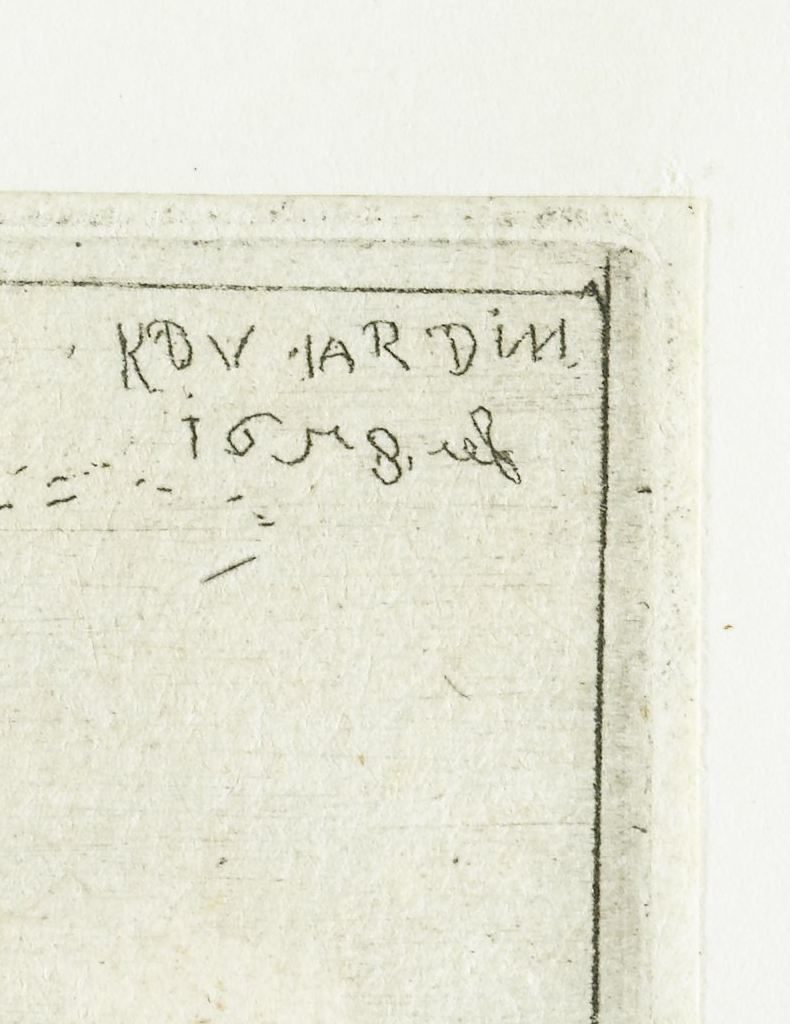 KDV IARDIN
1658. uef